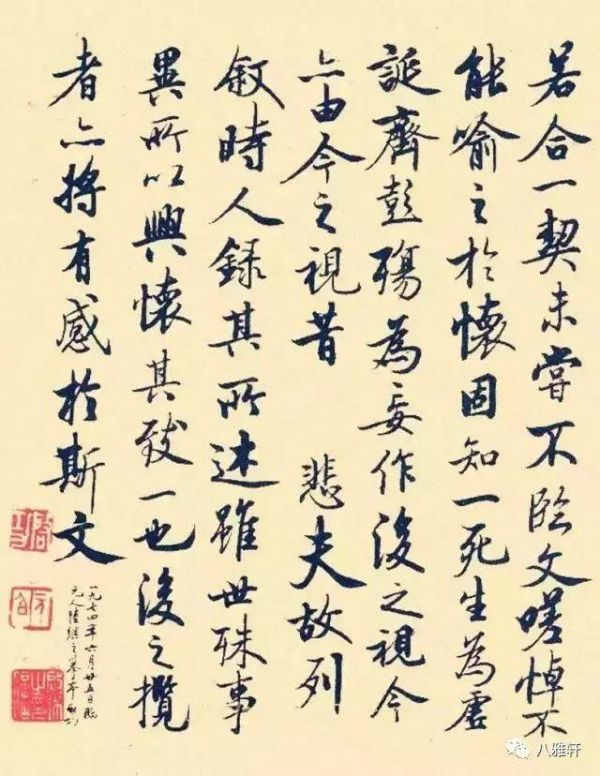 若合一契未嘗不臨文嗟悼不
能喻之於懷固知一死生為虛
誕齊彭殤為妄作後之視今
亦由今之視昔 悲夫故列
敘時人錄其所述雖世殊事
異所以興懷其致一也後之攬
者亦將有感於斯文
一九七四年六月廿五日臨
元人陸繼之摹本
八雅轩